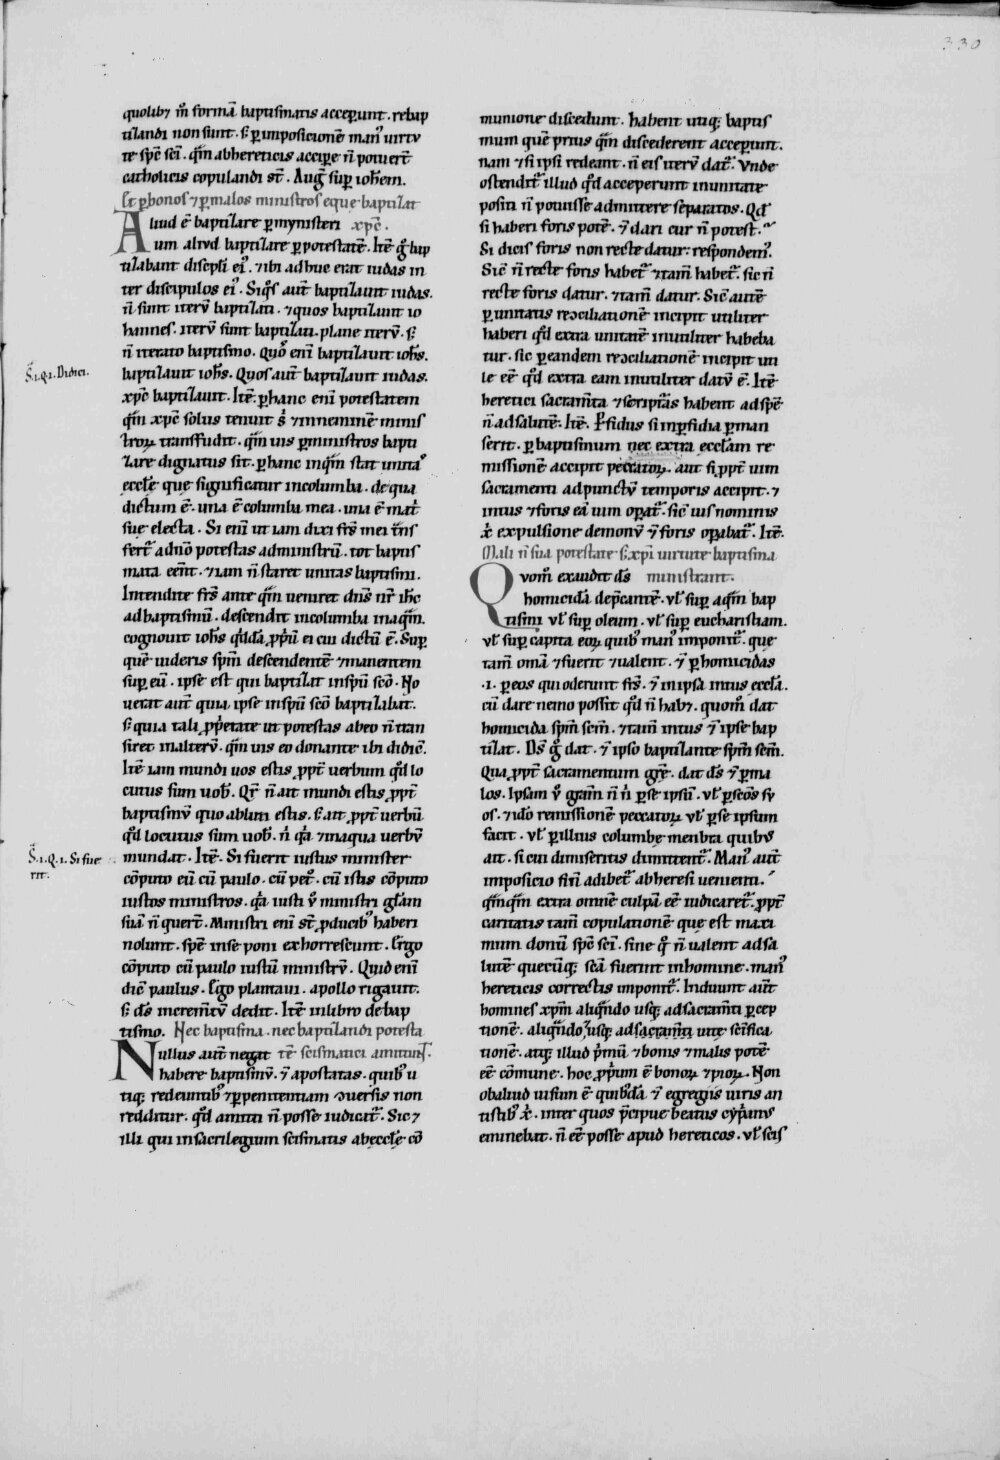 330
quolibꝫ m̄ formā baptismatis acceꝑunt. rebap
tizandi non sunt. s; ꝑ imposicionē man᷒ uirtu
te sp̄c sc̄i. qm̄ ab hereticis accipe n̄ potuert̄
catholicis copulandi st̄. Auḡ suꝑ ioh̄em.
Et ꝑ bonos ⁊ ꝑ malos ministros eque baptizat
xp̄c.
Aliud ē baptizare ꝑ mynisteri
um aliud baptizare ꝑ potestatē. Itē g̊ bap
tizabant discipli ei᷒. ⁊ ibi adhuc erat iudas in
ter discipulos ei᷒. Si q̊s aut̄ baptizauit iudas.
n̄ sunt iterū baptizati. ⁊ quos baptizauit io
hannes. iterū sunt baptizati. plane iterū. s;
n̄ iterato baptismo. Quos eni baptizauit ioh̄s.
baptizauit ioh̄s. Quos aut̄ baptizauit iudas.
xp̄c baptizauit. Itē. ꝑ hanc eni potestatem
qm̄ xp̄c solus tenuit s; ⁊ in neminē minis
troꝝ transfudit. qm̄ uis ꝑ ministros bapti
zare dignatus sit. ꝑ hanc inqm̄ stat unita᷒
eccl̄e que significatur in columba. de qua
dictum ē. una ē columba mea. una ē mat᷑
sue electa. Si eni ut iam dixi frs̄ mei t̄ns
fert᷑ ad n̄o potestas administrū. tot baptis
mata eēnt. ⁊ iam n̄ staret unitas baptismi.
Intendite frs̄ ante qm̄ ueniret dn̄s nr̄ ih̄c
ad baptismū. descendit in columba inaqm̄.
cognouit ioh̄s qd̄dā ꝓpū ei cui dictū ē. Suꝑ
quē uideris spm̄ descendentē ⁊ manentem
suꝑ eū. ipse est qui baptizat in spū sc̄o. No
uerat aut̄ quia ipse in spū sc̄o baptizabat.
s; quia tali ꝓpetate ut potestas ab eo n̄ tran
siret in alterū. qm̄ uis eo donante ibi didic̄.
Itē iam mundi uos estis ꝓpt᷑ uerbum qd̄ lo
cutus sum uob̄. Qr̄ n̄ ait mundi estis ꝓpt᷑
baptismū quo abluti estis. s; ait ꝓpt᷑ uerbū
qd̄ locutus sum uob̄. n᷒ qa ⁊ in aqua uerbū
mundat. Itē. Si fuerit iustus minister
cōputo eū cū paulo. cū pet᷒. cū istis cōputo
iustos ministros. qa iusti u᷒ ministri gl̄am
suā n̄ quert̄. Ministri eni st̄ ꝓ iudicib᷒ haberi
nolunt. spē in se poni exhorrescunt. Ergo
cōputo cū paulo iustū ministrū. Quid eni
dic̄ paulus. Ego plantaui. apollo rigauit.
s; ds̄ incremtū dedit. Itē in libro de bap
tismo. Nec baptisma. nec baptizandi potesta
tē scismatici amittunt.
Nullus aut̄ negat
habere baptismū. ⁊ apostatas. quib᷒ u
tiq; redeuntib᷒ ⁊ ꝑ penitentiam ɔuersis non
redditur. qd̄ amitti n̄ posse iudicat᷑. Sic ⁊
illi qui in sacrilegium scismatis ab eccl̄e cō
S̄.i.q.i. Didici.
S̄.i.q.i. Si fue
rit.
munione discedunt. habent utiq; baptis
mum quē prius qm̄ discederent acceꝑunt.
nam ⁊ si ipsi redeant. n̄ eis iterū dat᷑. Vnde
ostendit᷑ illud qd̄ acceperunt in unitate
positi n̄ potuisse admittere separatos. Qd̄
si haberi foris potē. ⁊ dari cur n̄ potest.
Si dicis foris non recte datur. respondem᷒.
Sic n̄ recte foris habet᷑ ⁊ tam̄ habet᷑. sic n̄
recte foris datur. ⁊ tam̄ datur. Sic autē
ꝑ unitatis reɔciliationē incipit utiliter
haberi qd̄ extra unitatē inutiliter habeba
tur. sic ꝑ eandem reɔciliationē incipit uti
le eē qd̄ extra eam inutiliter datū ē. Itē
heretici sacram̄ta ⁊ scripturas habent ad spē
n̄ ad salutē. Itē. Perfidus si in ꝑfidia ꝑman
serit. ꝑ baptismum nec extra eccl̄am re
missionē accipit peccatoꝝ. aut si ꝓpt᷑ uim
sacramenti ad punctū temporis accipit. ⁊
intus ⁊ foris ea uim oꝑat᷑. sic uis nominis
x᷒ expulsione demonū ⁊ foris oꝑabat᷑. Itē.
Mali n̄ sua potestate s; xp̄i uirtute baptisma
ministrant.
Quom̄ exaudit ds̄
homicidā dep̄cantē. ul̄ suꝑ aqm̄ bap
tismi ul̄ suꝑ oleum. ul̄ suꝑ eucharistiam.
ul̄ suꝑ capita eoꝝ quib᷒ man᷒ imponit᷑. que
tam̄ omā ⁊ fuerit ⁊ ualent. ⁊ ꝑ homicidas
.i. ꝑ eos qui oderunt frs̄. ⁊ in ipsa intus eccl̄a.
cū dare nemo possit qd̄ n̄ habꝫ. quom̄ dat
homicida spm̄ scm̄. ⁊ tam̄ intus ⁊ ipse bap
tizat. Ds̄ g̊ dat. ⁊ ipso baptizante spm̄ scm̄.
Qua ꝓpt᷑ sacramentum gr̄e. dat ds̄ ⁊ ꝑ ma
los. Ipsam u᷒ gram̄ n̄ n᷒ ꝑ se ipsū. ul̄ ꝑ sc̄os su
os. ⁊ ido remissionē peccatoꝝ ul̄ ꝑ se ipsum
facit. ul̄ ꝑ illius columbe membra quibus
ait. si cui dimiseritis dimittent᷑. Man᷒ aut̄
imposicio si n̄ adibet᷑ ab heresi uenienti.
qm̄qm̄ extra omnē culpā eē iudicaret᷑. ꝓpt᷑
caritatis tam̄ copulationē que est maxi
mum donū spc̄ sc̄i. sine q̊ n̄ ualent ad sa
lutē quecūq; sc̄a fuerint in homine. man᷒
hereticis correctis imponit᷑. Induunt aut̄
homines xpm̄ aliqn̄do usq; ad sacram̄ti ꝑcep
tionē. aliqn̄do usq; ad sacram̄ti uite sc̄ifica
tionē. atq; illud p̄mū ⁊ bonis ⁊ malis potē
eē cōmune. hoc ꝓprium ē bonoꝝ ⁊ pioꝝ. Non
ob aliud uisum ē quib᷒dā ⁊ egregiis uiris an
tistib᷒ x᷒. inter quos p̄cipue beatus cyp̄anus
eminebat. n̄ eē posse apud hereticos. ul̄ scis